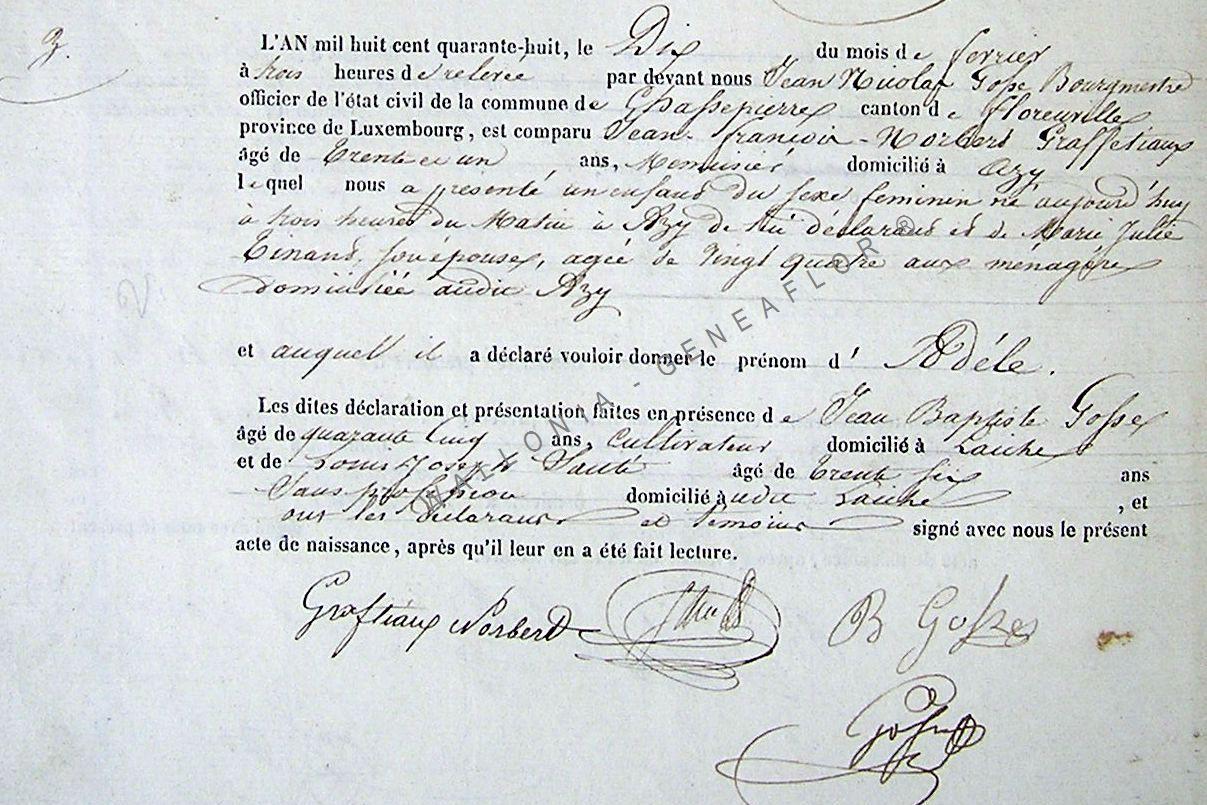 3.
L'AN mil huit cent quarante-huit, le Dix du mois de fevrier
à trois heures de relevée par devant nous Jean Nicolas Gosse Bourgmestre
officier de l'état civil de la commune de Chassepierre canton de Florenville
province de Luxembourg, est comparu Jean-françois-Norbert Graffetiaux
âgé de Trente et un ans, Menuisier domicilié à Azy
lequel nous a presenté un enfant du sexe feminin né aujourd'huy
à trois heures du Matin à Azy de lui déclarant et de Marie Julie
son épouse, agée de Vingt quatre ans ménagère
domiciliée audit Azy
et auquel il a déclaré vouloir donner le prénom d' Adéle.
Les dites déclaration et présentation faites en présence de Jean Baptiste Gosse
âgé de quarante Cinq ans, Cultivateur domicilié à Laiche
et de Louis Joseph âgé de Trente six ans
Sans profession domicilié àudit Laiche, et
ont les déclarant et temoins signé avec nous le présent
acte de naissance, après qu'il leur en a été fait lecture.
Graftiaux Norbert
B Gosse
Gosse
WALLONIA - GENEAFLOR ®